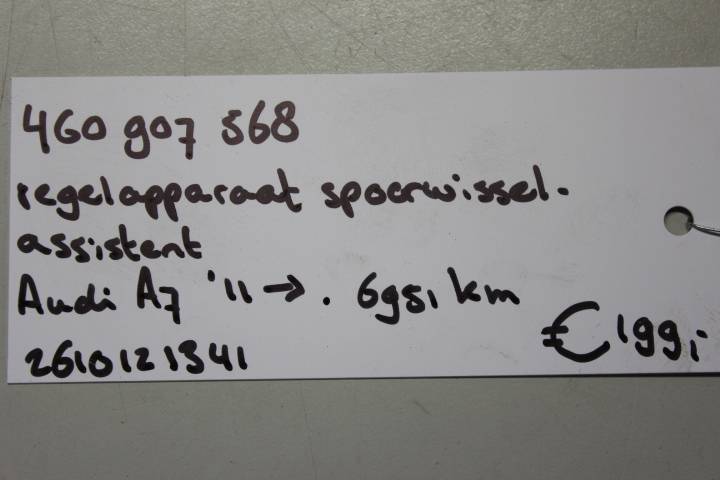 4G0 907 568
regelapparaat spoorwissel-
assistent
Audi A7 '11 → . 6951 km
2610121341
€ 199,-